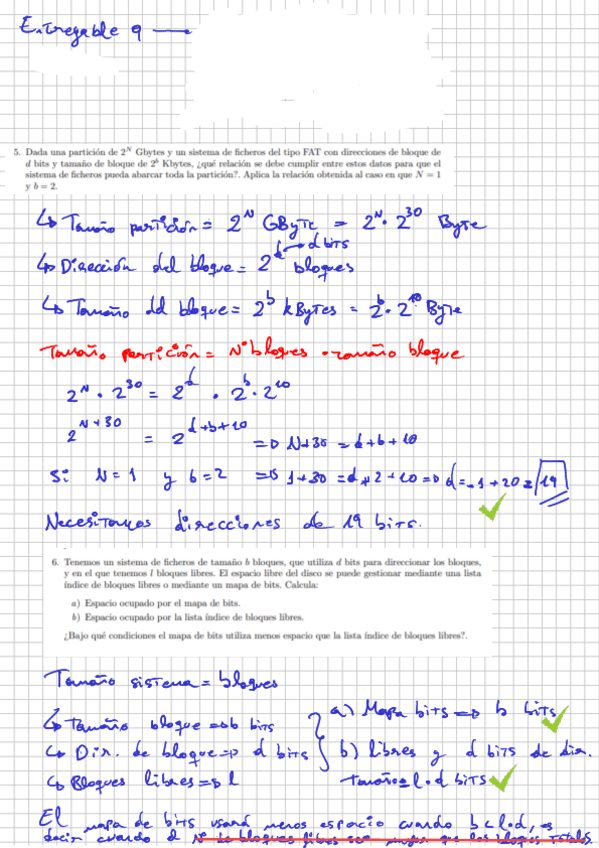 Entregable 9
5. Dada una partición de 2^N Gbytes y un sistema de ficheros del tipo FAT con direcciones de bloque de
d bits y tamaño de bloque de 2^b Kbytes, ¿qué relación se debe cumplir entre estos datos para que el
sistema de ficheros pueda abarcar toda la partición?. Aplica la relación obtenida al caso en que N = 1
y b = 2.
↳ Tamaño partición = 2^N GByTe = 2^N · 2^30 ByTe
↳ Dirección del bloque = 2^d → d bits bloques
↳ Tamaño del bloque = 2^b kBytes = 2^b · 2^10 ByTe
Tamaño partición = Nº bloques · tamaño bloque
2^N · 2^30 = 2^d · 2^b · 2^10
2^N+30 = 2^d+b+10 => N+30 = d+b+10
Si N=1 y b=2 => 1+30 = d+2+10 => d = -1+20 = 19
Necesitamos direcciones de 19 bits.
6. Tenemos un sistema de ficheros de tamaño b bloques, que utiliza d bits para direccionar los bloques,
y en el que tenemos l bloques libres. El espacio libre del disco se puede gestionar mediante una lista
índice de bloques libres o mediante un mapa de bits. Calcula:
a) Espacio ocupado por el mapa de bits.
b) Espacio ocupado por la lista índice de bloques libres.
¿Bajo qué condiciones el mapa de bits utiliza menos espacio que la lista índice de bloques libres?.
Tamaño sistema = bloques
↳ Tamaño bloque => b bits a) Mapa bits => b bits
↳ Dir. de bloque => d bits b) l libres y d bits de dir.
↳ Bloques libres => l tamaño = l · d bits
El mapa de bits usará menos espacio cuando b < l·d, es
decir cuando el Nº de bloques libres que los bloques totales.